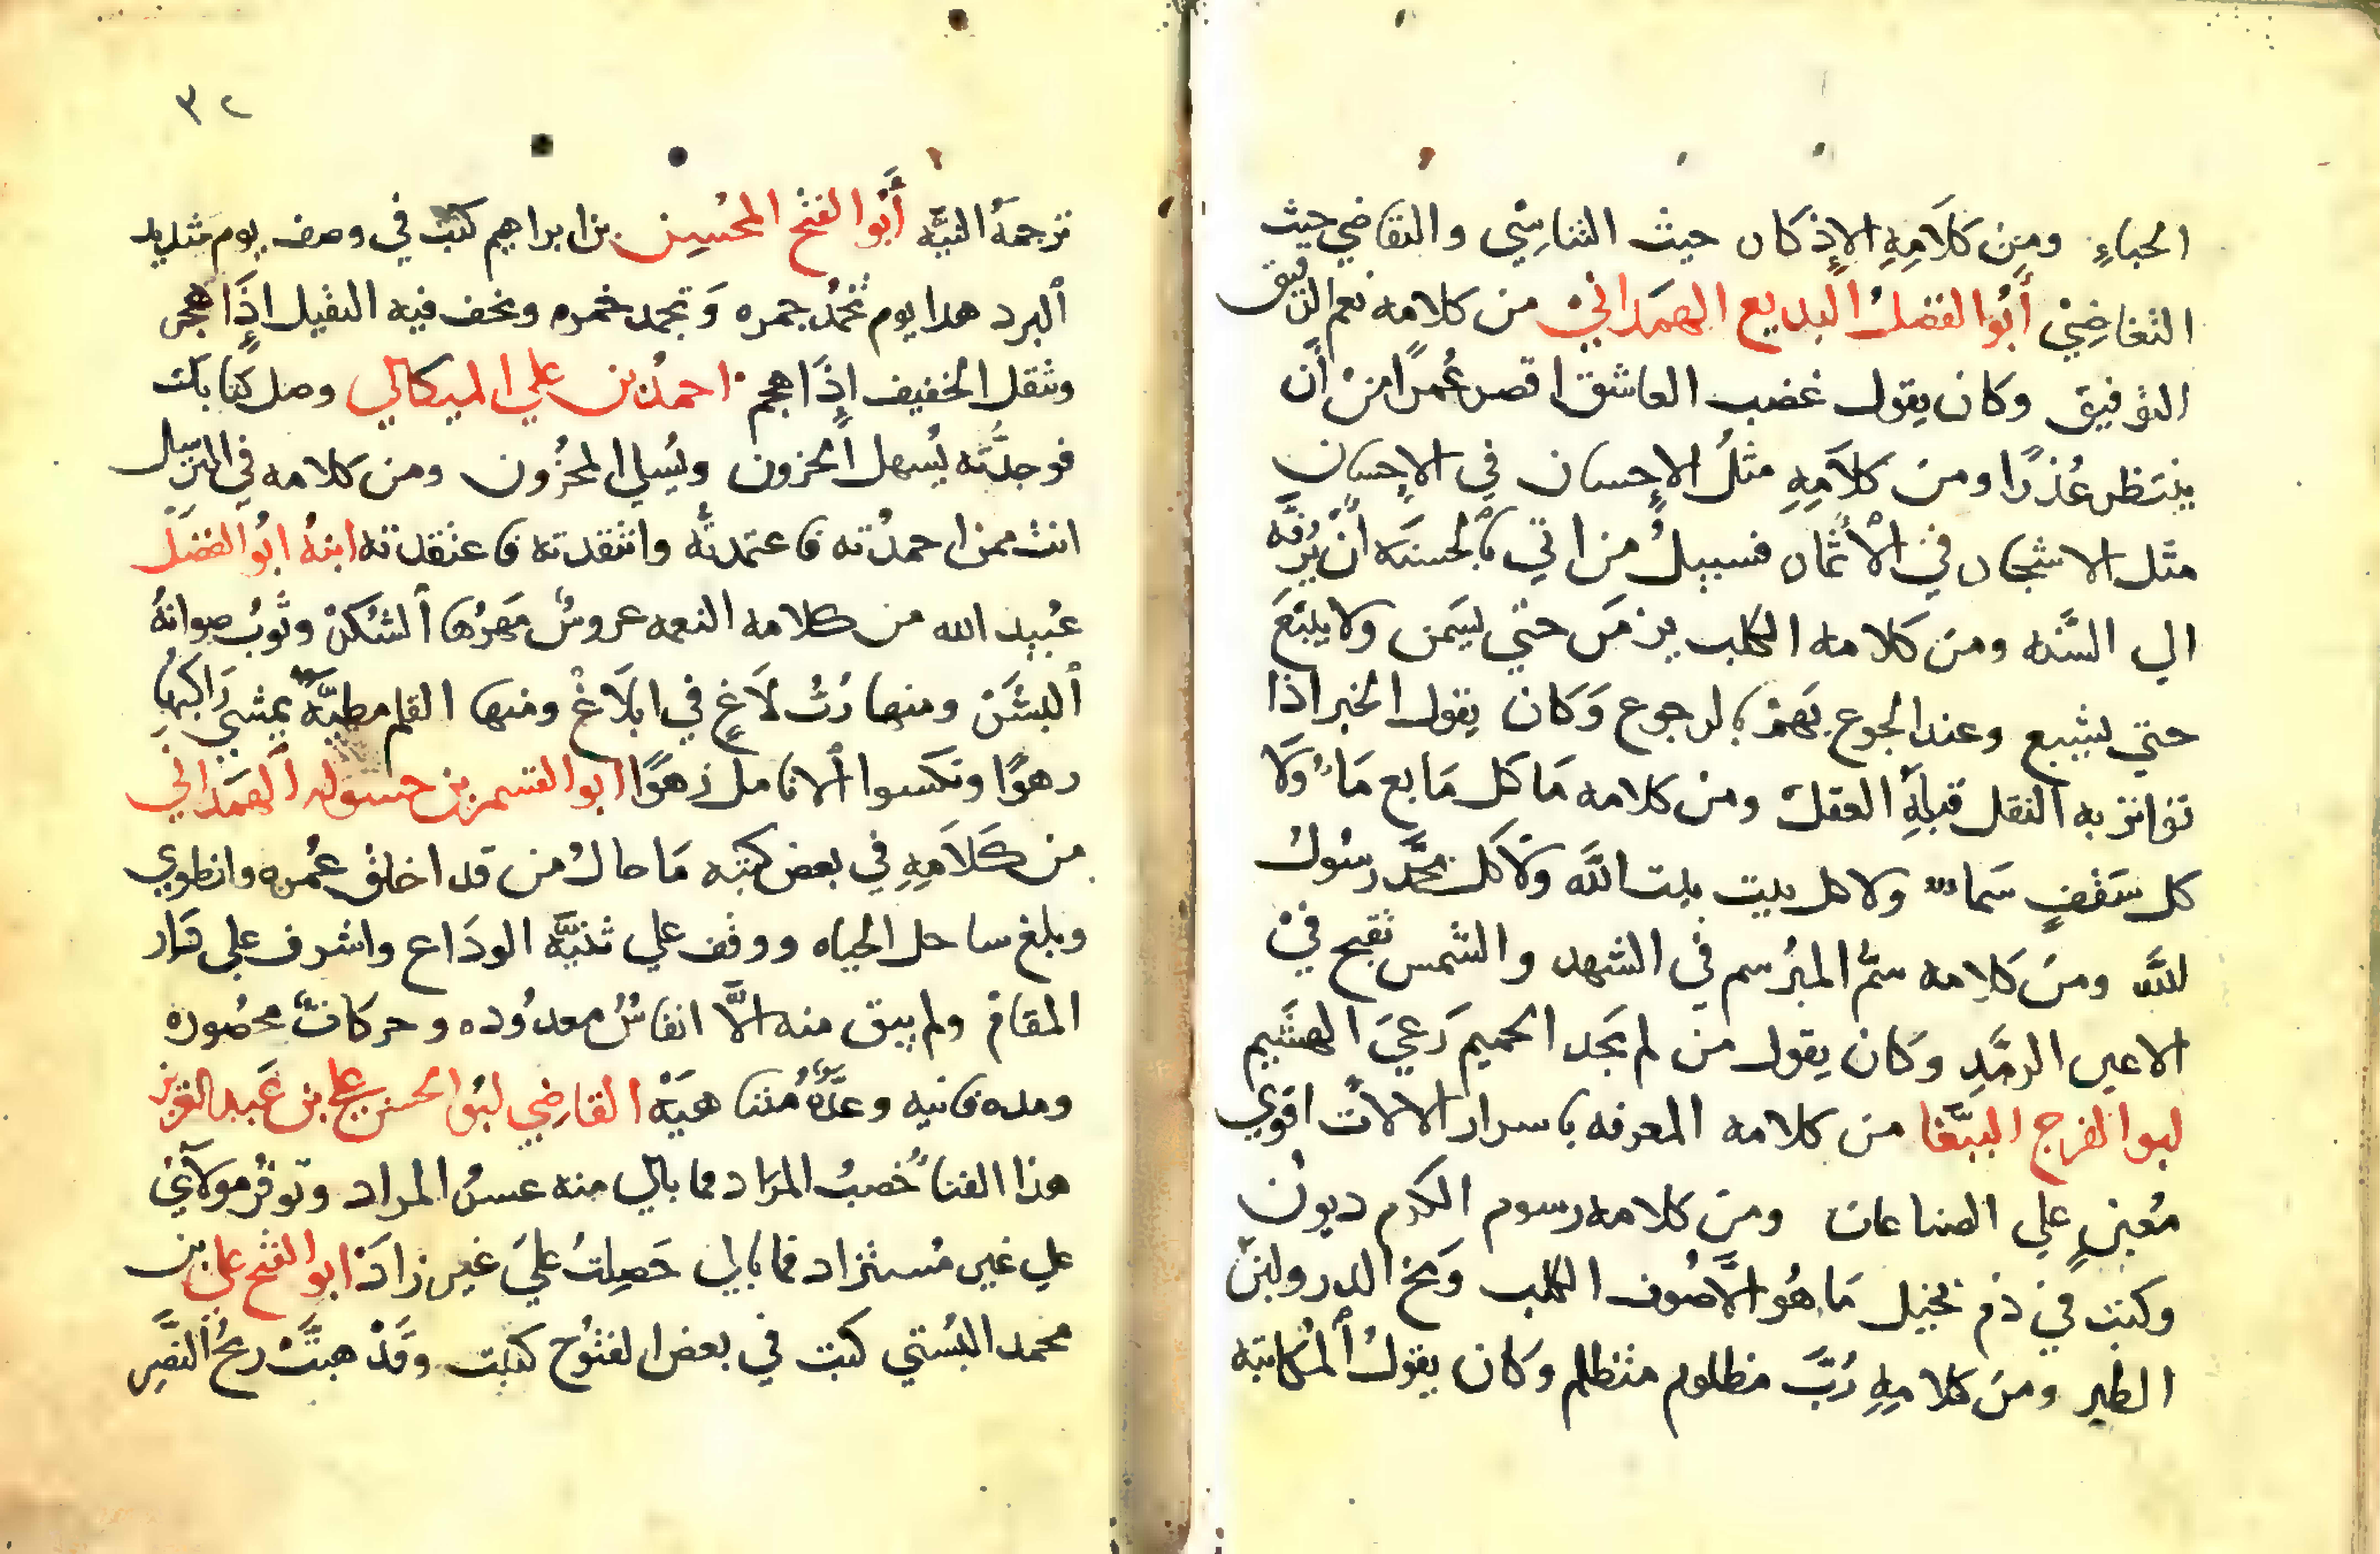 الحباءِ ومن كلَامِهِ الإذكار حيث التناسِي والتقاضي حيث
التغاضِيْ أَبُو الفضل البديع الهمَدانيْ من كلامه نعم الرفيق
التوفيق وكان يقول غضب العاشق اقصر عُمرًا من أن
ينتظر عُذرًا ومن كلاَمِهِ مثلُ الإحسان في الإحسان
مثل الاشجار في الأثمار فسبيلُ من اتي بالحسنه أن يُرفَّه
الي السَّنه ومن كلامه الكلب يزمَر حتي يسَمن ولا يتبَع
حتي يشبع وعند الجوع يَهمْ بالرجوع وَكان يقول الخبر اذا
تواتر به النقل قبلَهُ العقل ومن كلامه مَا كل مَايع مَاء وَلا
كل سَقفٍ سَماء ولا كل بيت بيت اللَّه وَلَا كل محمَّد رسُول
للَّه ومن كلامه سَمُّ المبرسم في الشهد والشمس تقبح فيْ
الاعين الرمَّدِ وَكان يقول من لم يجد الحميم رَعيَ الهشَيم
ابوا الفرج الببَّغا من كلامه المعرفه باسرار الالات اقوي
مُعينٍ علي الصناعات ومن كلامه رسوم الكرم ديون
وكتب في ذم بخيل مَا هُو الَّا صُوف الكلب وَمخ الدر ولبن
الطير ومن كلامِهِ رُبَّ مظلوم متظلم وكان يقول المُكاتبه
٣٢
ترجمَةُ النيَّه أَبُوا الفتْح المحُسِن بن ابراهيم كتب في وصف يوم شديد
ألبرد هذا يوم تخمُد جمره وَتجمد خمره ويخف فيه الثقيل اذَا هجر
ويثقل الخفيف اذَا هجم احمدُ بن علي الميكالي وصل كتابك
فوجدتُّه يُسهل الحزون ويُسلي المحزُون ومن كلامه في الترسل
انت ممن احمدُته فاعتمدتُه وانتقدته فاعتقدته ابنهُ ابُو الفضل
عُبيد الله من كلامه النعمه عروسٌ مَهرُها ألشُكرْ وثَوبُ صوانهُ
ألبشَر ومنها رُبَّ لَاغٍ في ابلَاغْ ومنها القلم مطيَّةٌ يمشي رَاكبها
رهوًا وتكسوا ألانامل زهوًا ابو القسم بن حسوله ألهمَداني
من كَلَامِهِ في بعض كتبه مَا حالُ من قد اخلق عُمره وانطوي
وبلغ ساحل الحياه ووقف علي ثنيَّه الودَاع واشرف علي دَار
المقامْ ولم يبق منه الَّا انفاسٌ معدُوده وحركاتٌ محصُوره
ومده فانيه وعدَّهٌ مُتناهيَهْ القاضِي ابُو الحسن علي بن عَبد العزيز
هذا الفتاُ خُصبُ المرَاد فما بالي منه عسرُ المراد وتوفُر مولَاي
علي غير مُستزاد فما بالي حَصِلتُ عليَ غير زادَ ابو الفتح علي بن
محمد البُستي كتب في بعض الفتُوح كتبت وقَدْ هبتَّ ريحُ النصَّر